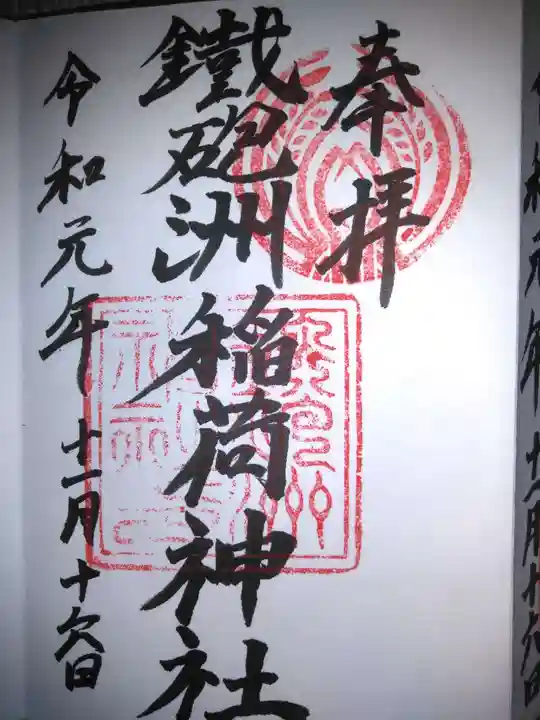 奉拝
鐵砲洲稲荷神社
令和元年十一月十六日